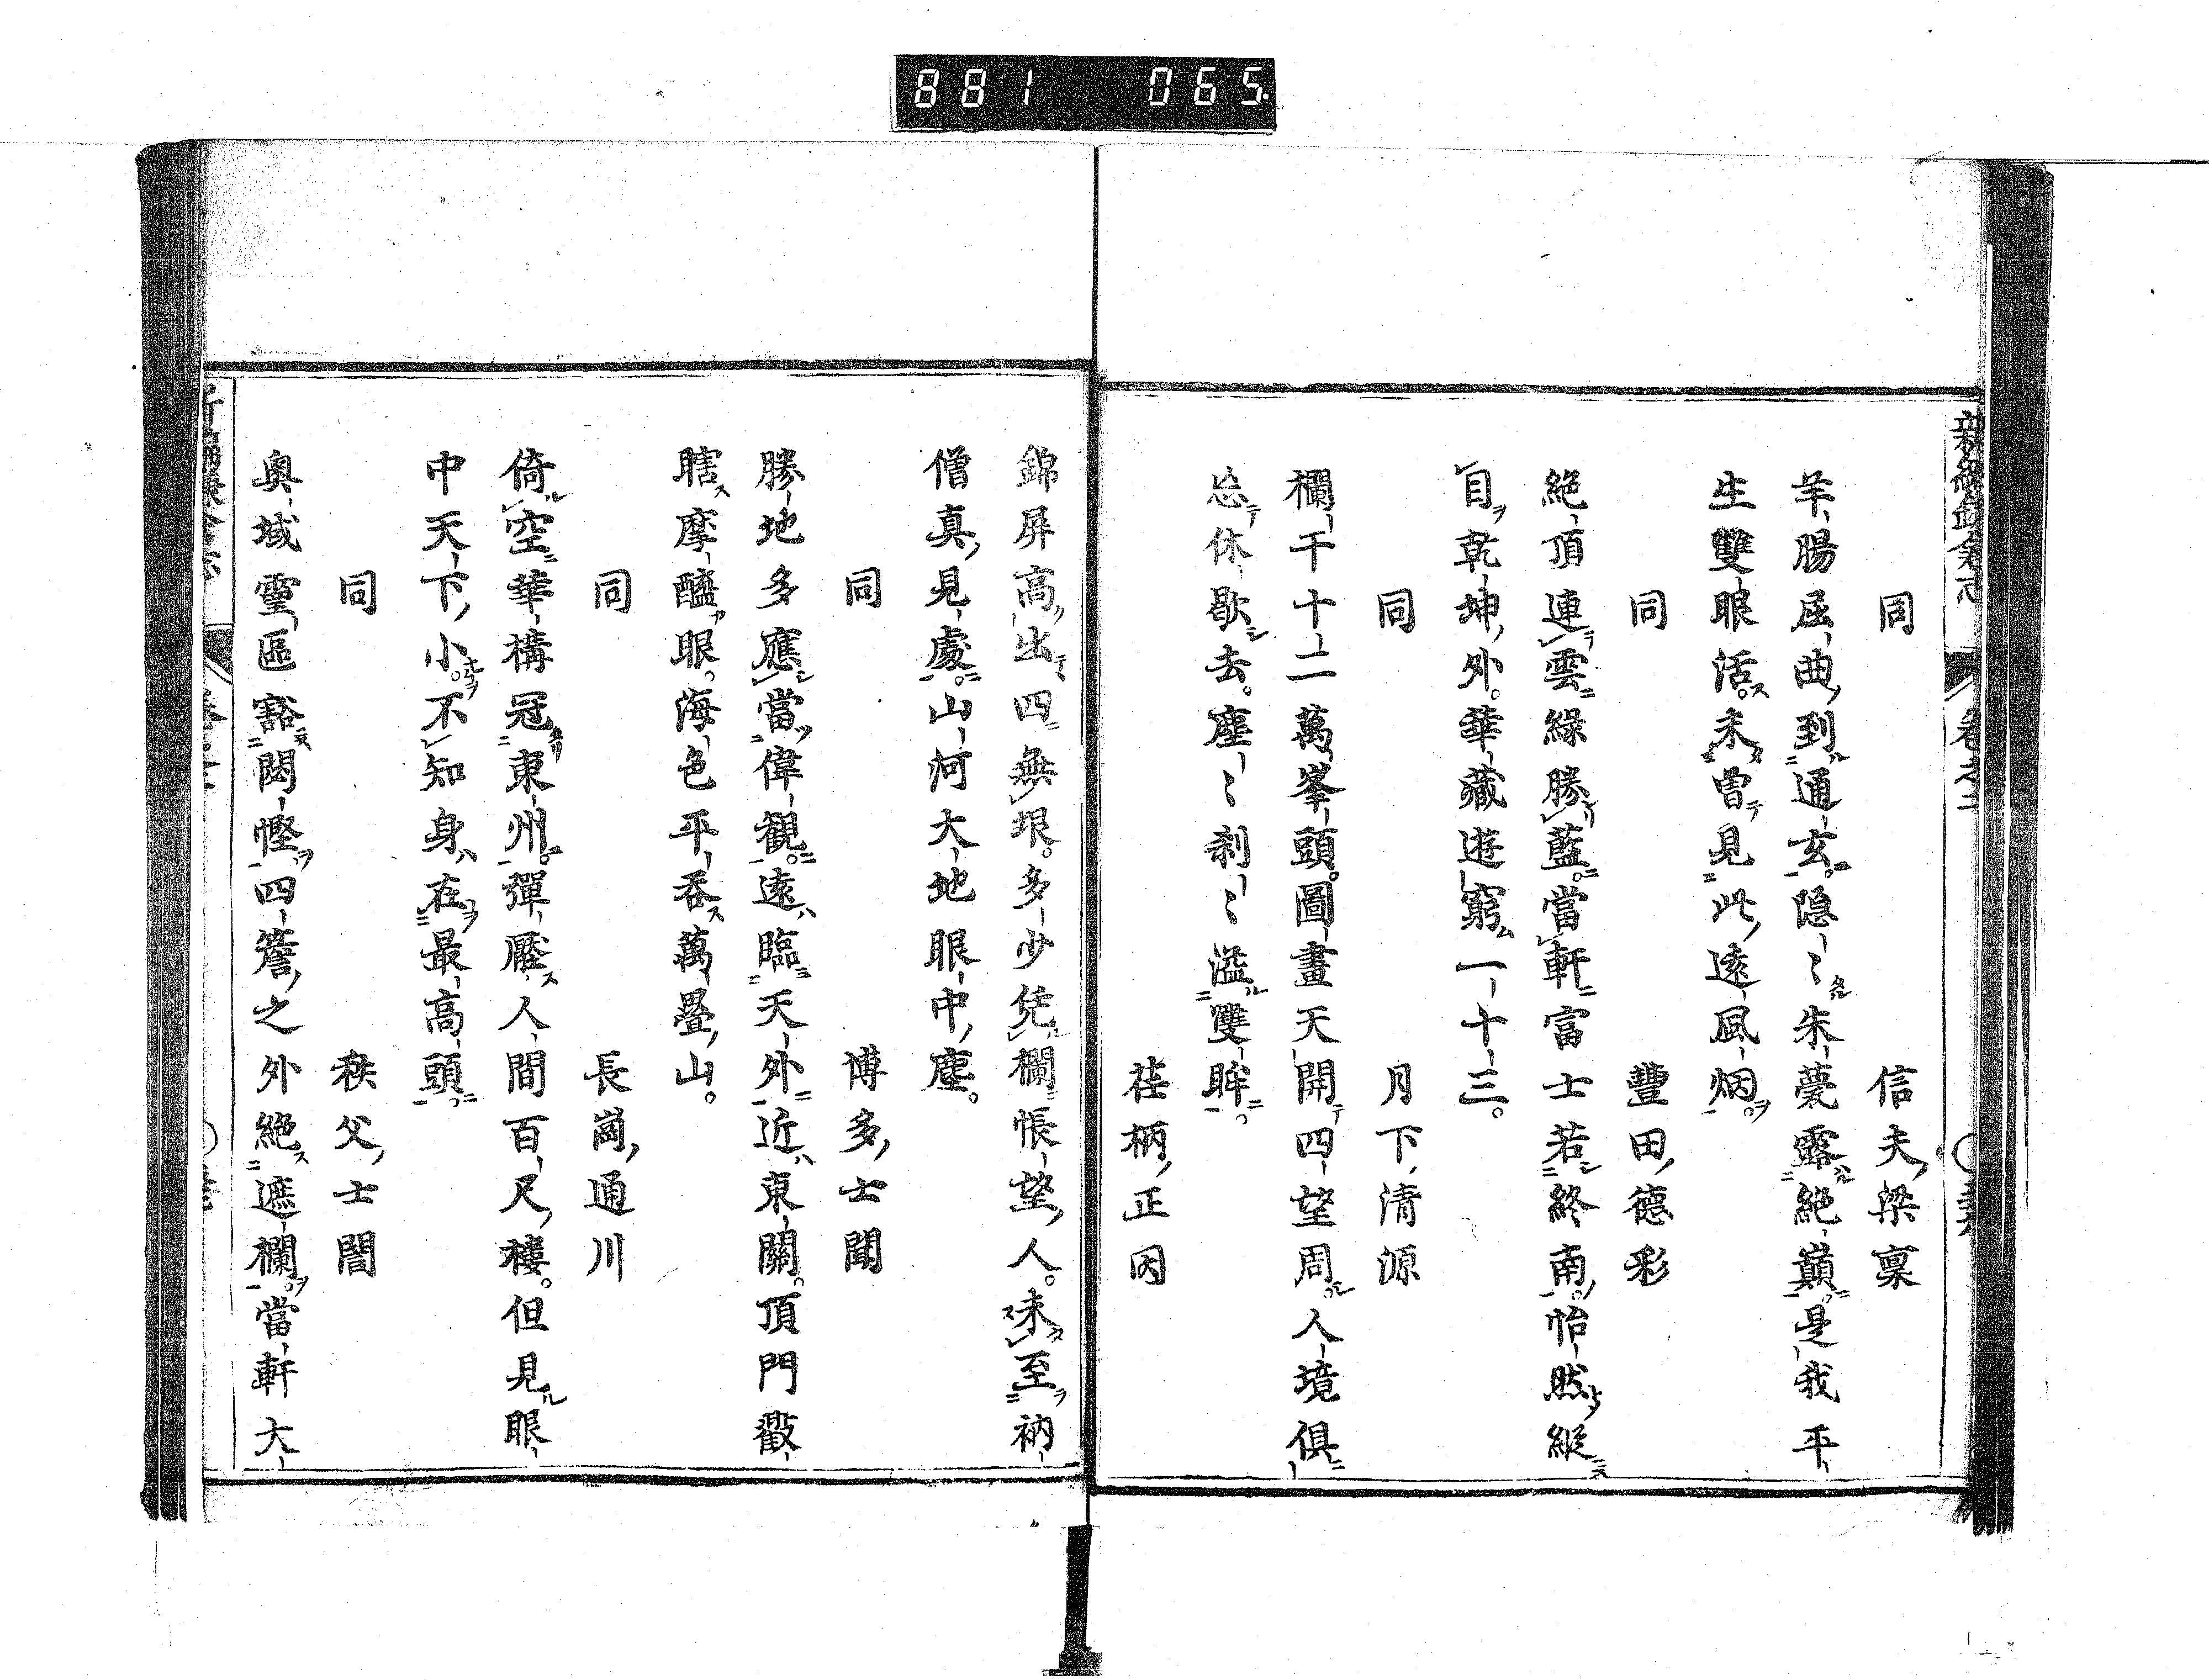 881 065
新編鎌倉志 卷之二
同 信夫梁稟
羊腸屈曲到通玄。隱〻朱甍露絶巔。是我平
生雙眼活。未曾見此遠風炳。
同 豐田德彩
絶頂連雲緑勝藍。當軒富士若終南。怡然縱
目乾坤外。華藏遊窮一十三。
同 月下清源
欄干十二萬峯頭。圖畫天開四望周。人境倶
忘休歇去。塵〻刹〻溢雙眸。
荏柄正因
錦屏高出四無垠。多少凭欄悵望人。未至衲
僧真見處。山河大地眼中塵。
同 博多士聞
勝地多應當偉観。遠臨天外近東關。頂門㸔
瞎摩醯眼。海色平吞萬疊山。
同 長崗通川
倚空華構冠東州。彈壓人間百尺樓。但見眼
中天下小。不知身在最高頭。
同 秩父士誾
奥域靈區豁閟慳。四簷之外絶遮欄。當軒大